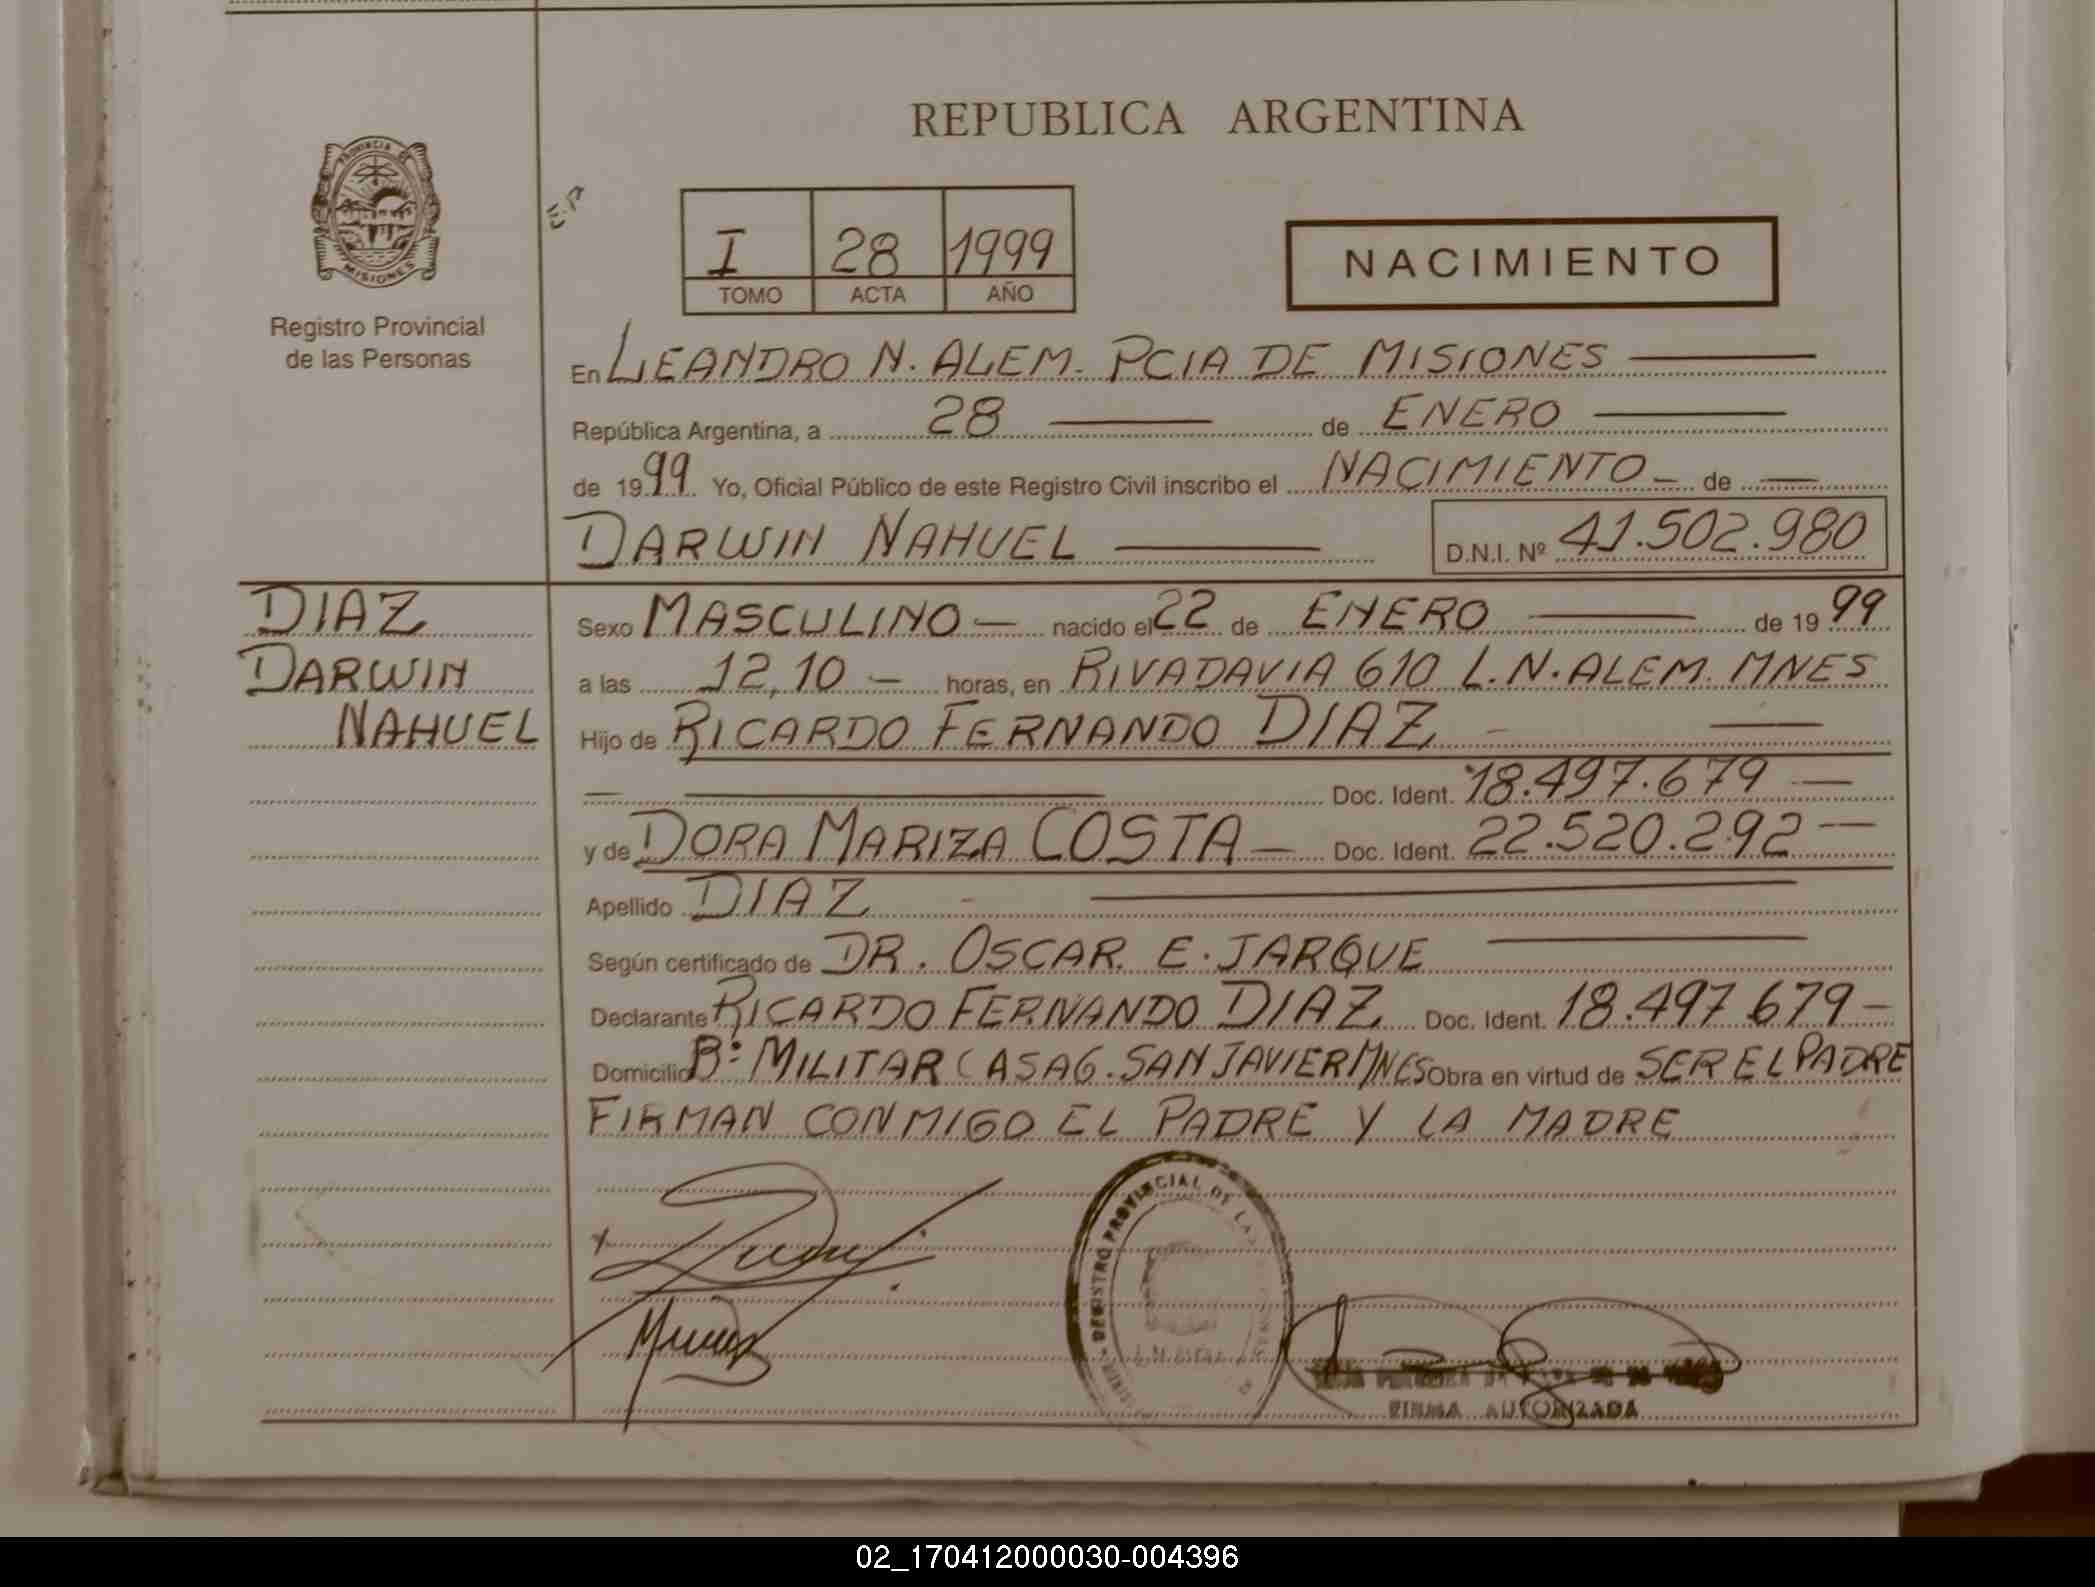 REPUBLICA ARGENTINA
PROVINCIA DE
MISIONES
Registro Provincial
de las Personas
I 28 1999
TOMO ACTA AÑO
NACIMIENTO
En LEANDRO N. ALEM. PCIA DE MISIONES
República Argentina, a 28 de ENERO
de 1999 Yo, Oficial Público de este Registro Civil inscribo el NACIMIENTO de
DARWIN NAHUEL D.N.I. Nº 41.502.980
DIAZ
DARWIN
NAHUEL
Sexo MASCULINO nacido el 22 de ENERO de 1999
a las 12,10 horas, en RIVADAVIA 610 L.N.ALEM. MNES
Hijo de RICARDO FERNANDO DIAZ
Doc. Ident. 18.497.679
y de DORA MARIZA COSTA Doc. Ident. 22.520.292
Apellido DIAZ
Según certificado de DR. OSCAR E. JARQUE
Declarante RICARDO FERNANDO DIAZ Doc. Ident. 18.497.679
Domicilio Bº MILITAR CASA 6. SAN JAVIER MNES Obra en virtud de SER EL PADRE
FIRMAN CONMIGO EL PADRE Y LA MADRE
REGISTRO PROVINCIAL DE LAS
FIRMA AUTORIZADA
02_170412000030-004396